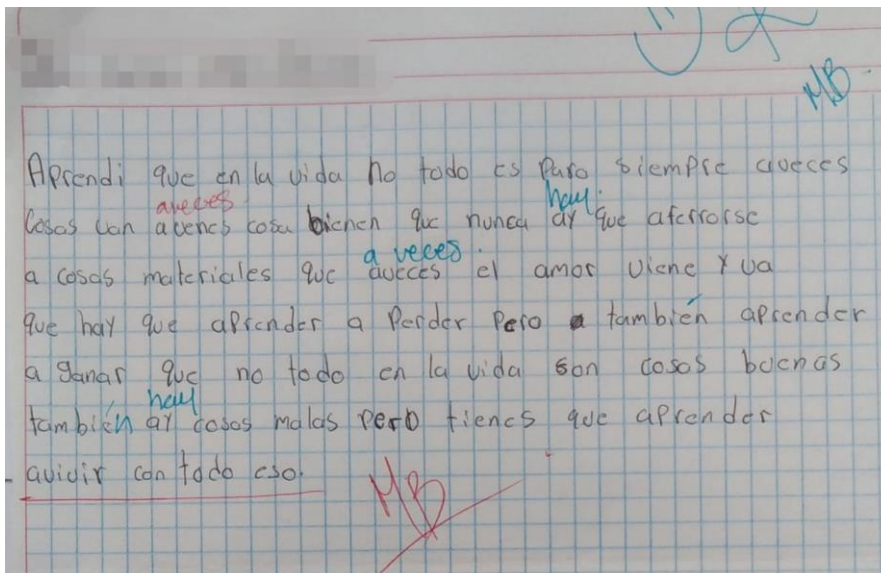 MB.
Aprendi que en la vida no todo es Paro siempre aveces
aveces
hay.
Cosas van avences cosa bienen que nunca ay que aferrorse
a veces.
a cosas materiales que aveces el amor viene y va
que hay que aprender a Perder Pero a también aprender
a ganar que no todo en la vida son cosas buenas
hay
también ay cosas malas pero tienes que aprender
avivir con todo eso.
MB